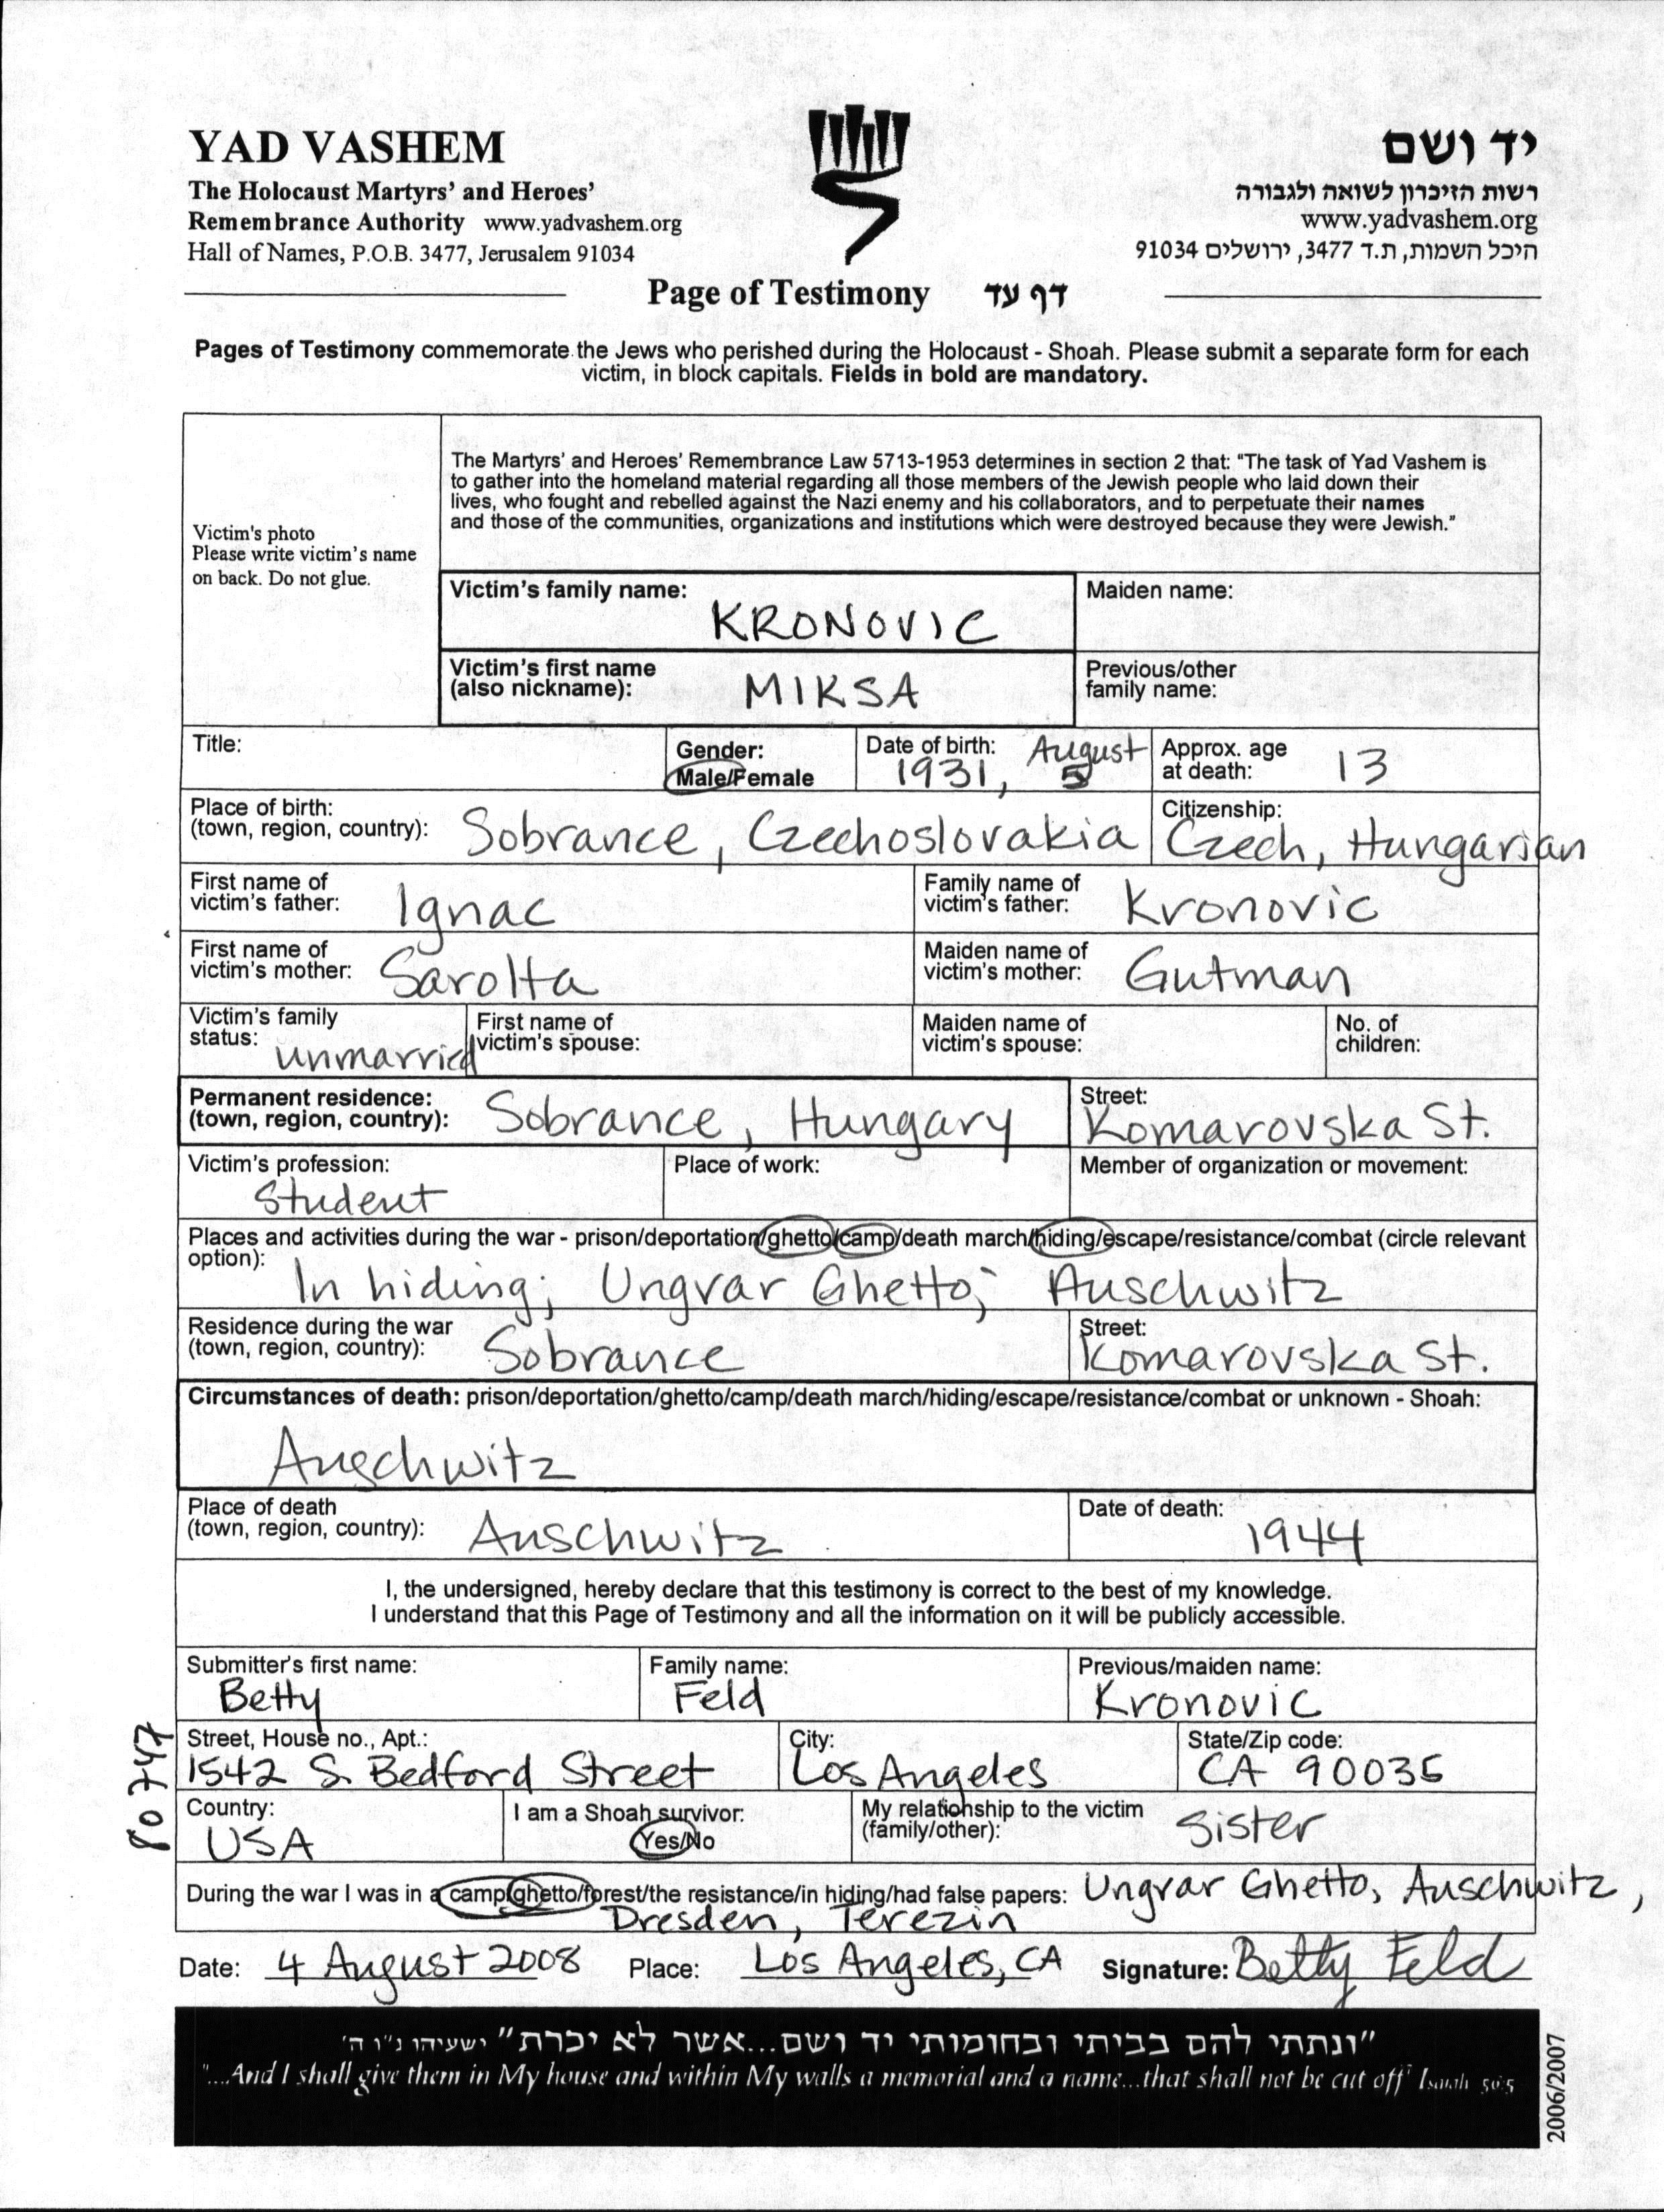 YAD VASHEM
The Holocaust Martyrs' and Heroes'
Remembrance Authority www.yadvashem.org
Hall of Names, P.O.B. 3477, Jerusalem 91034
יד ושם
רשות הזיכרון לשואה ולגבורה
www.yadvashem.org
היכל השמות, ת.ד 3477, ירושלים 91034
Page of Testimony דף עד
Pages of Testimony commemorate the Jews who perished during the Holocaust - Shoah. Please submit a separate form for each
victim, in block capitals. Fields in bold are mandatory.
Victim's photo
Please write victim's name
on back. Do not glue.
The Martyrs' and Heroes' Remembrance Law 5713-1953 determines in section 2 that: "The task of Yad Vashem is
to gather into the homeland material regarding all those members of the Jewish people who laid down their
lives, who fought and rebelled against the Nazi enemy and his collaborators, and to perpetuate their names
and those of the communities, organizations and institutions which were destroyed because they were Jewish."
Victim's family name: KRONOVIC
Maiden name:
Victim's first name
(also nickname): MIKSA
Previous/other
family name:
Title:
Gender:
Male/Female
Date of birth: August
1931, 5
Approx. age
at death: 13
Place of birth:
(town, region, country): Sobrance, Czechoslovakia
Citizenship:
Czech, Hungarian
First name of
victim's father: Ignac
Family name of
victim's father: Kronovic
First name of
victim's mother: Sarolta
Maiden name of
victim's mother: Gutman
Victim's family
status: unmarried
First name of
victim's spouse:
Maiden name of
victim's spouse:
No. of
children:
Permanent residence:
(town, region, country): Sobrance, Hungary
Street:
Komarovska St.
Victim's profession:
Student
Place of work:
Member of organization or movement:
Places and activities during the war - prison/deportation/ghetto/camp/death march/hiding/escape/resistance/combat (circle relevant
option): In hiding; Ungvar Ghetto; Auschwitz
Residence during the war
(town, region, country): Sobrance
Street:
Komarovska St.
Circumstances of death: prison/deportation/ghetto/camp/death march/hiding/escape/resistance/combat or unknown - Shoah:
Auschwitz
Place of death
(town, region, country): Auschwitz
Date of death:
1944
I, the undersigned, hereby declare that this testimony is correct to the best of my knowledge.
I understand that this Page of Testimony and all the information on it will be publicly accessible.
Submitter's first name:
Betty
Family name:
Feld
Previous/maiden name:
Kronovic
Street, House no., Apt.:
1542 S. Bedford Street
City:
Los Angeles
State/Zip code:
CA 90035
Country:
USA
I am a Shoah survivor:
Yes/No
My relationship to the victim
(family/other): Sister
During the war I was in a camp/ghetto/forest/the resistance/in hiding/had false papers: Ungvar Ghetto, Auschwitz,
Dresden, Terezin
Date: 4 August 2008 Place: Los Angeles, CA Signature: Betty Feld
80747
"ונתתי להם בביתי ובחומותי יד ושם...אשר לא יכרת" ישעיהו נ"ו ה'
"....And I shall give them in My house and within My walls a memorial and a name...that shall not be cut off" Isaiah 56:5
2006/2007